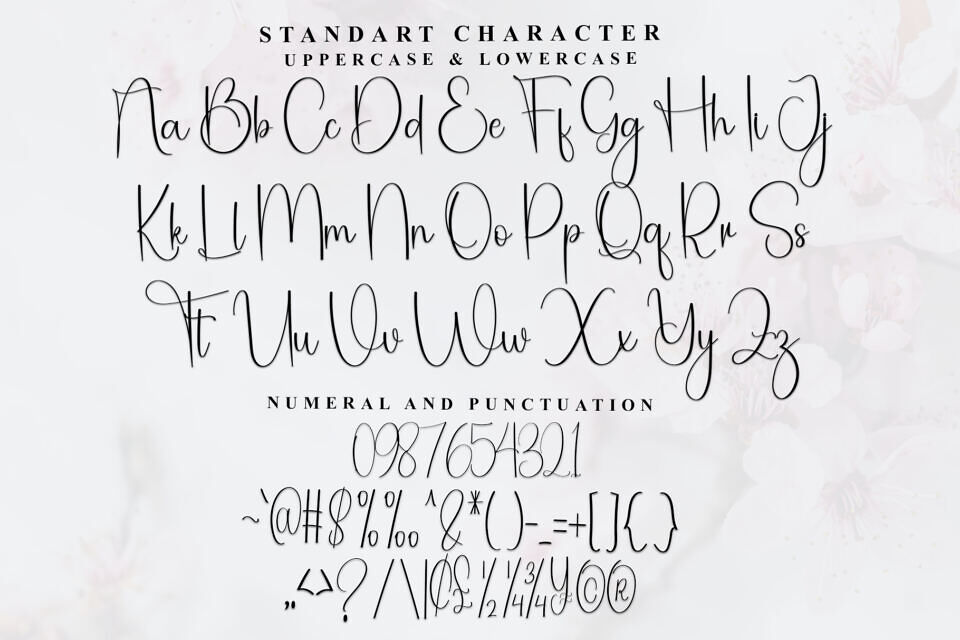 STANDART CHARACTER
UPPERCASE & LOWERCASE
Aa Bb Cc Dd Ee Ff Gg Hh Ii Jj
Kk Ll Mm Nn Oo Pp Qq Rr Ss
Tt Uu Vv Ww Xx Yy Zz
NUMERAL AND PUNCTUATION
0987654321
~`@#$%‰^&*()-_=+[]{}
„<>?/\|₵£½¼¾¥©®